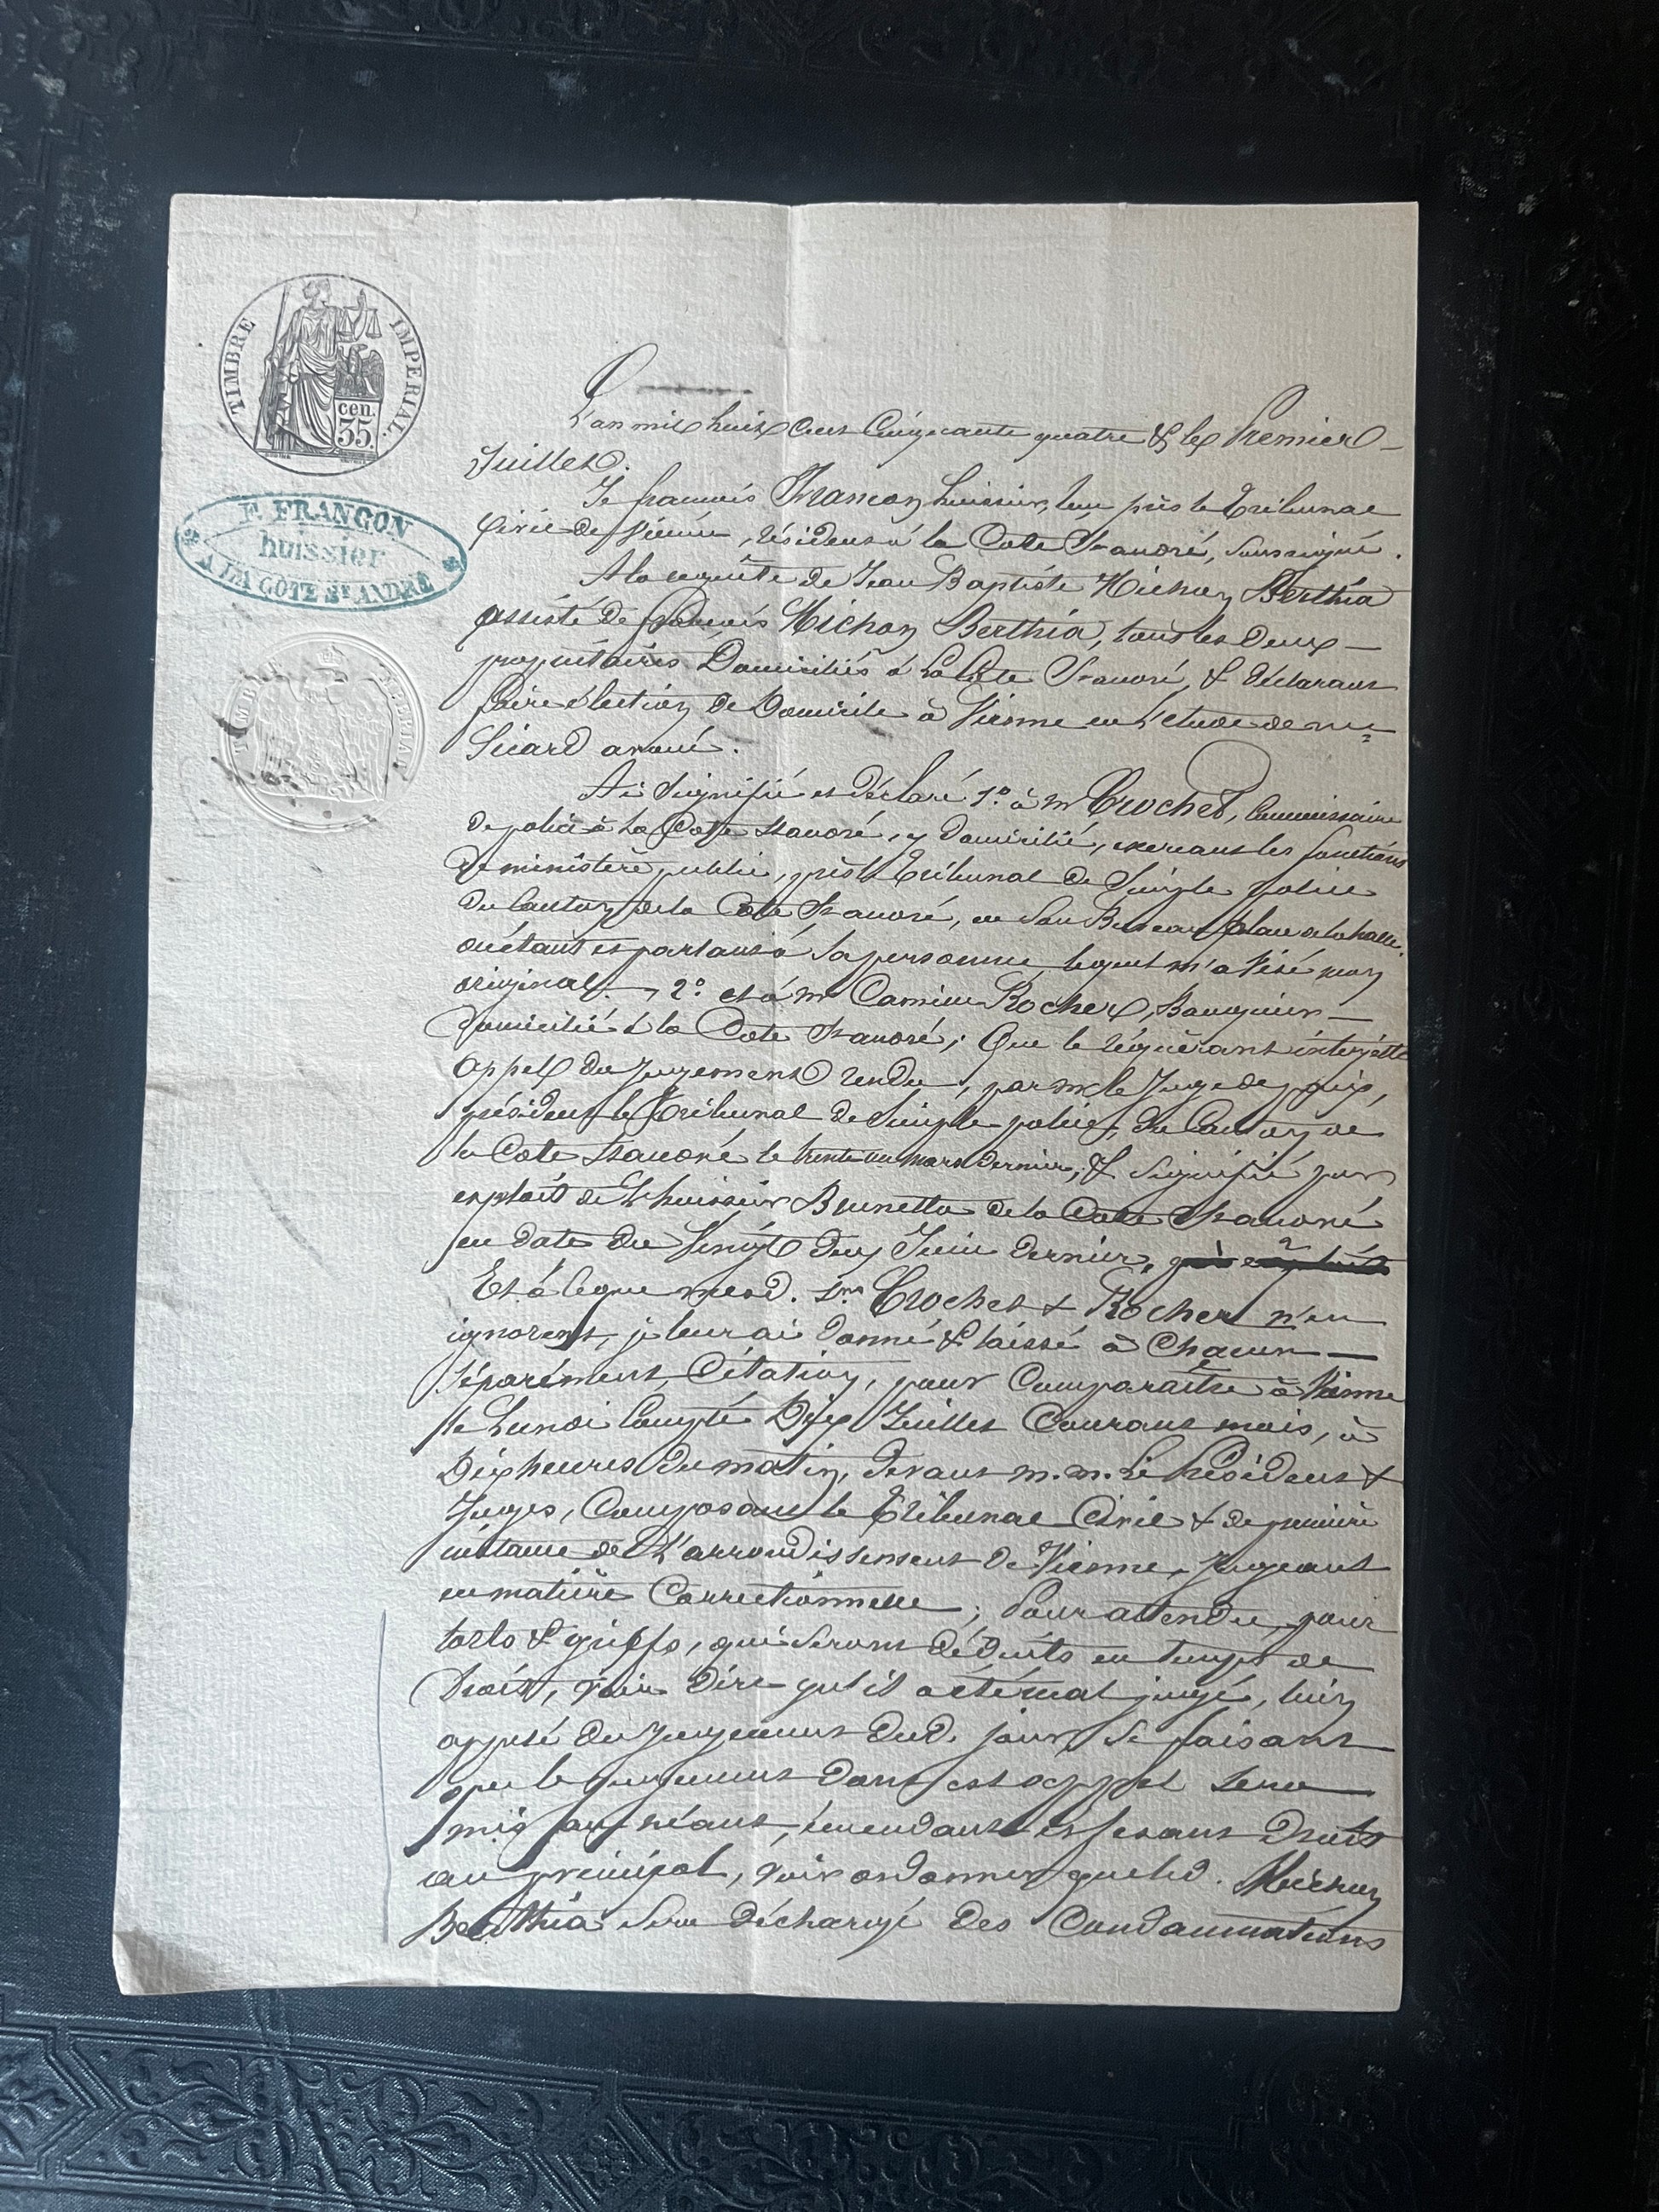 TIMBRE IMPERIAL.
cen.
35
F. FRANÇON
huissier
A LA CÔTE ST. ANDRÉ
TIMBRE IMPERIAL
L'an mil huit cent Cinquante quatre & le Premier
Juillet.
Je francois Francon huissier, près le Tribunal
Civil de Vienne, résidant à la Cote St andré, soussigné.
A la requête de Jean Baptiste Michon Berthia
assisté de francois Michon Berthia, tous les deux
propriétaires Domiciliés à La Cote St andré, & déclarant
faire election de Domicile à Vienne en l'etude de me
Sicard avoué.
Ai Signifié et déclaré 1o. à mr Crochet, Commissaire
de police à la Cote St andré, y domicilié, exercant les fonctions
de ministère public, près le Tribunal de Simple police
du Canton de la Cote St andré, en Son Bureau place de la halle
où étant et parlant à Sa personne lequel m'a Visé mon
original. 2o. et à mr Camille Rocher, Banquier
domicilié à la Cote St andré; Que le réquérant interjette
appel du Jugement rendu, par mr le Juge de paix,
présidant le Tribunal de Simple police, du Canton de
la Cote St andré le trente un mars dernier, & signifié par
exploit de l'huissier Brunetto de la Cote St andré
en date du Vingt deux Juin dernier,
Et à ce que mesd. Srs Crochet & Rocher n'en
ignorent, je leur ai donné & laissé à Chacun
Séparément, Citation, pour Comparaitre à Vienne
le Lundi Compté Dix Juillet Courant mois, à
Dix heures du matin, devant m.m. Le Président &
Juges, Composant le Tribunal Civil & de première
instance de L'arrondissement de Vienne, Jugeant
en matière Correctionnelle; Pour attendu, pour
torts & griefs, qui seront déduits en temps de
Droit, Voir dire qu'il a été mal jugé, bien
appelé du Jugement dud. jour, Ce faisant
que le jugement dont est appel sera
mis au néant, émendant et fesant Droit
au principal, voir ordonner que led. Michon
Berthia Sera déchargé des Condamnations